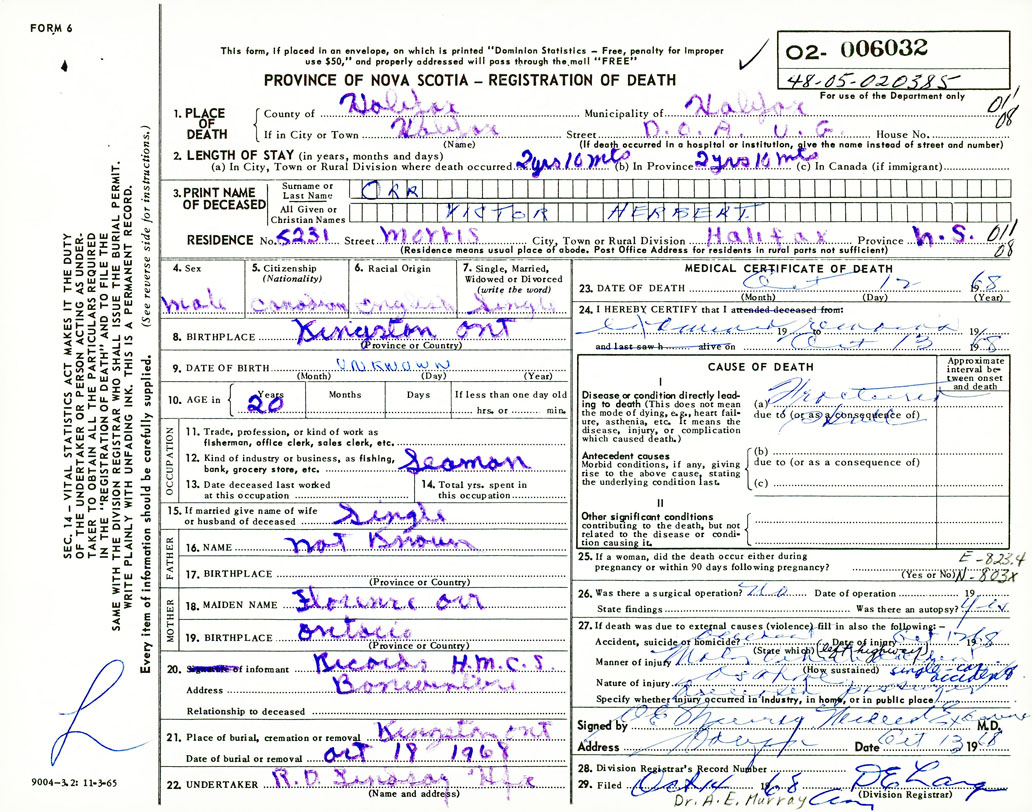 FORM 6
This form, if placed in an envelope, on which is printed "Dominion Statistics – Free, penalty for improper
use $50," and properly addressed will pass through the mail "FREE"
PROVINCE OF NOVA SCOTIA – REGISTRATION OF DEATH
O2- 006032
48-05-020385
For use of the Department only
011
08
1. PLACE OF DEATH
County of Halifax Municipality of Halifax
If in City or Town Halifax Street D.O.A. V.G. House No.
(Name) (If death occurred in a hospital or institution, give the name instead of street and number)
2. LENGTH OF STAY (in years, months and days)
(a) In City, Town or Rural Division where death occurred 2yrs 10 mts (b) In Province 2yrs 10 mts (c) In Canada (if immigrant)
3. PRINT NAME OF DECEASED
Surname or Last Name ORR
All Given or Christian Names VICTOR HERBERT
RESIDENCE No. 5231 Street Morris City, Town or Rural Division Halifax Province N.S. 011
08
(Residence means usual place of abode. Post Office Address for residents in rural parts not sufficient)
4. Sex
male
5. Citizenship (Nationality)
Canadian
6. Racial Origin
English
7. Single, Married, Widowed or Divorced (write the word)
Single
8. BIRTHPLACE Kingston Ont
(Province or Country)
9. DATE OF BIRTH UNKNOWN
(Month) (Day) (Year)
10. AGE in Years 20 Months Days If less than one day old
hrs. or min.
OCCUPATION
11. Trade, profession, or kind of work as
fisherman, office clerk, sales clerk, etc.
12. Kind of industry or business, as fishing,
bank, grocery store, etc. Seaman
13. Date deceased last worked
at this occupation
14. Total yrs. spent in
this occupation
15. If married give name of wife
or husband of deceased Single
FATHER
16. NAME not Known
17. BIRTHPLACE
(Province or Country)
MOTHER
18. MAIDEN NAME Florence Orr
19. BIRTHPLACE Ontario
(Province or Country)
20. Signature of informant Records H.M.C.S.
Address Bonaventure
Relationship to deceased
21. Place of burial, cremation or removal Kingston Ont
Date of burial or removal Oct 19 1968
22. UNDERTAKER R.D. Lindsay Hfx
(Name and address)
MEDICAL CERTIFICATE OF DEATH
23. DATE OF DEATH Oct 12 1968
(Month) (Day) (Year)
24. I HEREBY CERTIFY that I attended deceased from:
Examined 19 to remains 19
and last saw h alive on Oct 13 1968
CAUSE OF DEATH
Approximate interval between onset and death
I
Disease or condition directly leading to death (This does not
mean the mode of dying, e.g., heart failure, asthenia, etc. It means the
disease, injury, or complication
which caused death.)
(a) Fractured
due to (or as a consequence of)
Skull
Antecedent causes
Morbid conditions, if any, giving
rise to the above cause, stating
the underlying condition last.
(b)
due to (or as a consequence of)
(c)
II
Other significant conditions
contributing to the death, but not
related to the disease or condition causing it.
25. If a woman, did the death occur either during
pregnancy or within 90 days following pregnancy?
(Yes or No)
E-823.4
N-803X
26. Was there a surgical operation? No Date of operation 19
State findings Was there an autopsy? Yes
27. If death was due to external causes (violence) fill in also the following:–
Accident, suicide or homicide? Accident Date of injury Oct 12 68
(State which) (left highway)
Manner of injury Motor car
(How sustained) single-car accident
Nature of injury
Specify whether injury occurred in industry, in home, or in public place
Signed by A E Murray Medical Examiner M.D.
Address Date Oct 13 1968
28. Division Registrar's Record Number
29. Filed Oct 14 1968
(Division Registrar)
Dr. A. E. Murray
SEC. 14 – VITAL STATISTICS ACT MAKES IT THE DUTY
OF THE UNDERTAKER OR PERSON ACTING AS UNDER-
TAKER TO OBTAIN ALL THE PARTICULARS REQUIRED
IN THE "REGISTRATION OF DEATH" AND TO FILE THE
SAME WITH THE DIVISION REGISTRAR WHO SHALL ISSUE THE BURIAL PERMIT.
WRITE PLAINLY WITH UNFADING INK. THIS IS A PERMANENT RECORD.
Every item of information should be carefully supplied. (See reverse side for instructions.)
9004-3.2: 11-3-65